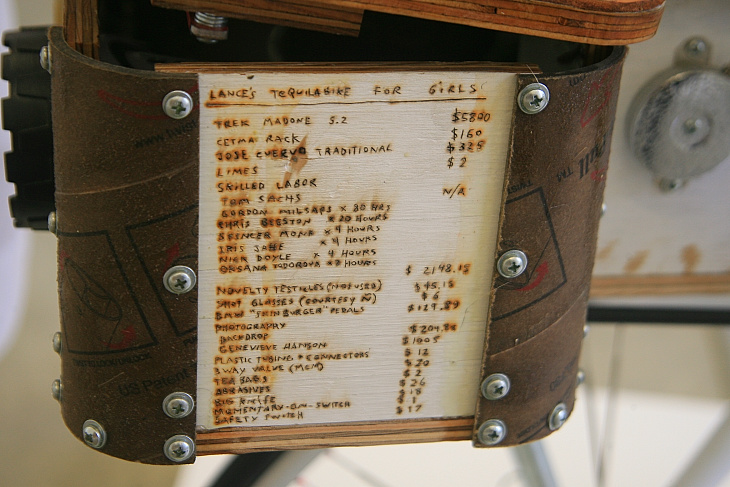 LANCE'S TEQUILABIKE FOR GIRLS
TREK MADONE 5.2 $5800
CETMA RACK $160
JOSE CUERVO TRADITIONAL $325
LIMES $2
SKILLED LABOR
TOM SACHS N/A
GORDON MILSAPS x 80 HRS
CHRIS BEESTON x 20 HOURS
SPENCER MONK x 4 HOURS
IRIS JAHE x 4 HOURS
NICK DOYLE x 4 HOURS
OKSANA TODOROVA x 2 HOURS
$ 2148.15
NOVELTY TESTICLES (NOT USED) $45.15
SHOT GLASSES (COURTESY $6
BMX "SHINBURGER" PEDALS $129.89
PHOTOGRAPHY
BACKDROP $204.88
GENEVIEVE HANSON $1005
PLASTIC TUBING + CONNECTORS $12
3WAY VALVE (MCM) $20
TEA BAGS $2
ABRASIVES $26
BIG KNIFE $18
MOMENTARY-ON-SWITCH $1
SAFETY SWITCH $17
US Patent